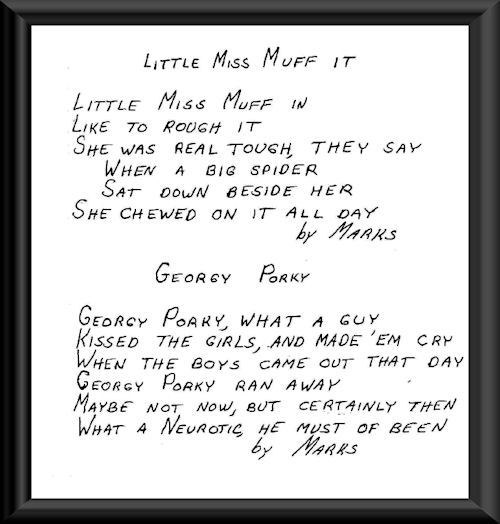 LITTLE MISS MUFF IT
LITTLE MISS MUFF IN
LIKE TO ROUGH IT
SHE WAS REAL TOUGH, THEY SAY
WHEN A BIG SPIDER
SAT DOWN BESIDE HER
SHE CHEWED ON IT ALL DAY
by MARKS
GEORGY PORKY
GEORGY PORKY, WHAT A GUY
KISSED THE GIRLS, AND MADE 'EM CRY
WHEN THE BOYS CAME OUT THAT DAY
GEORGY PORKY RAN AWAY
MAYBE NOT NOW, BUT CERTAINLY THEN
WHAT A NEUROTIC, HE MUST OF BEEN
by MARKS